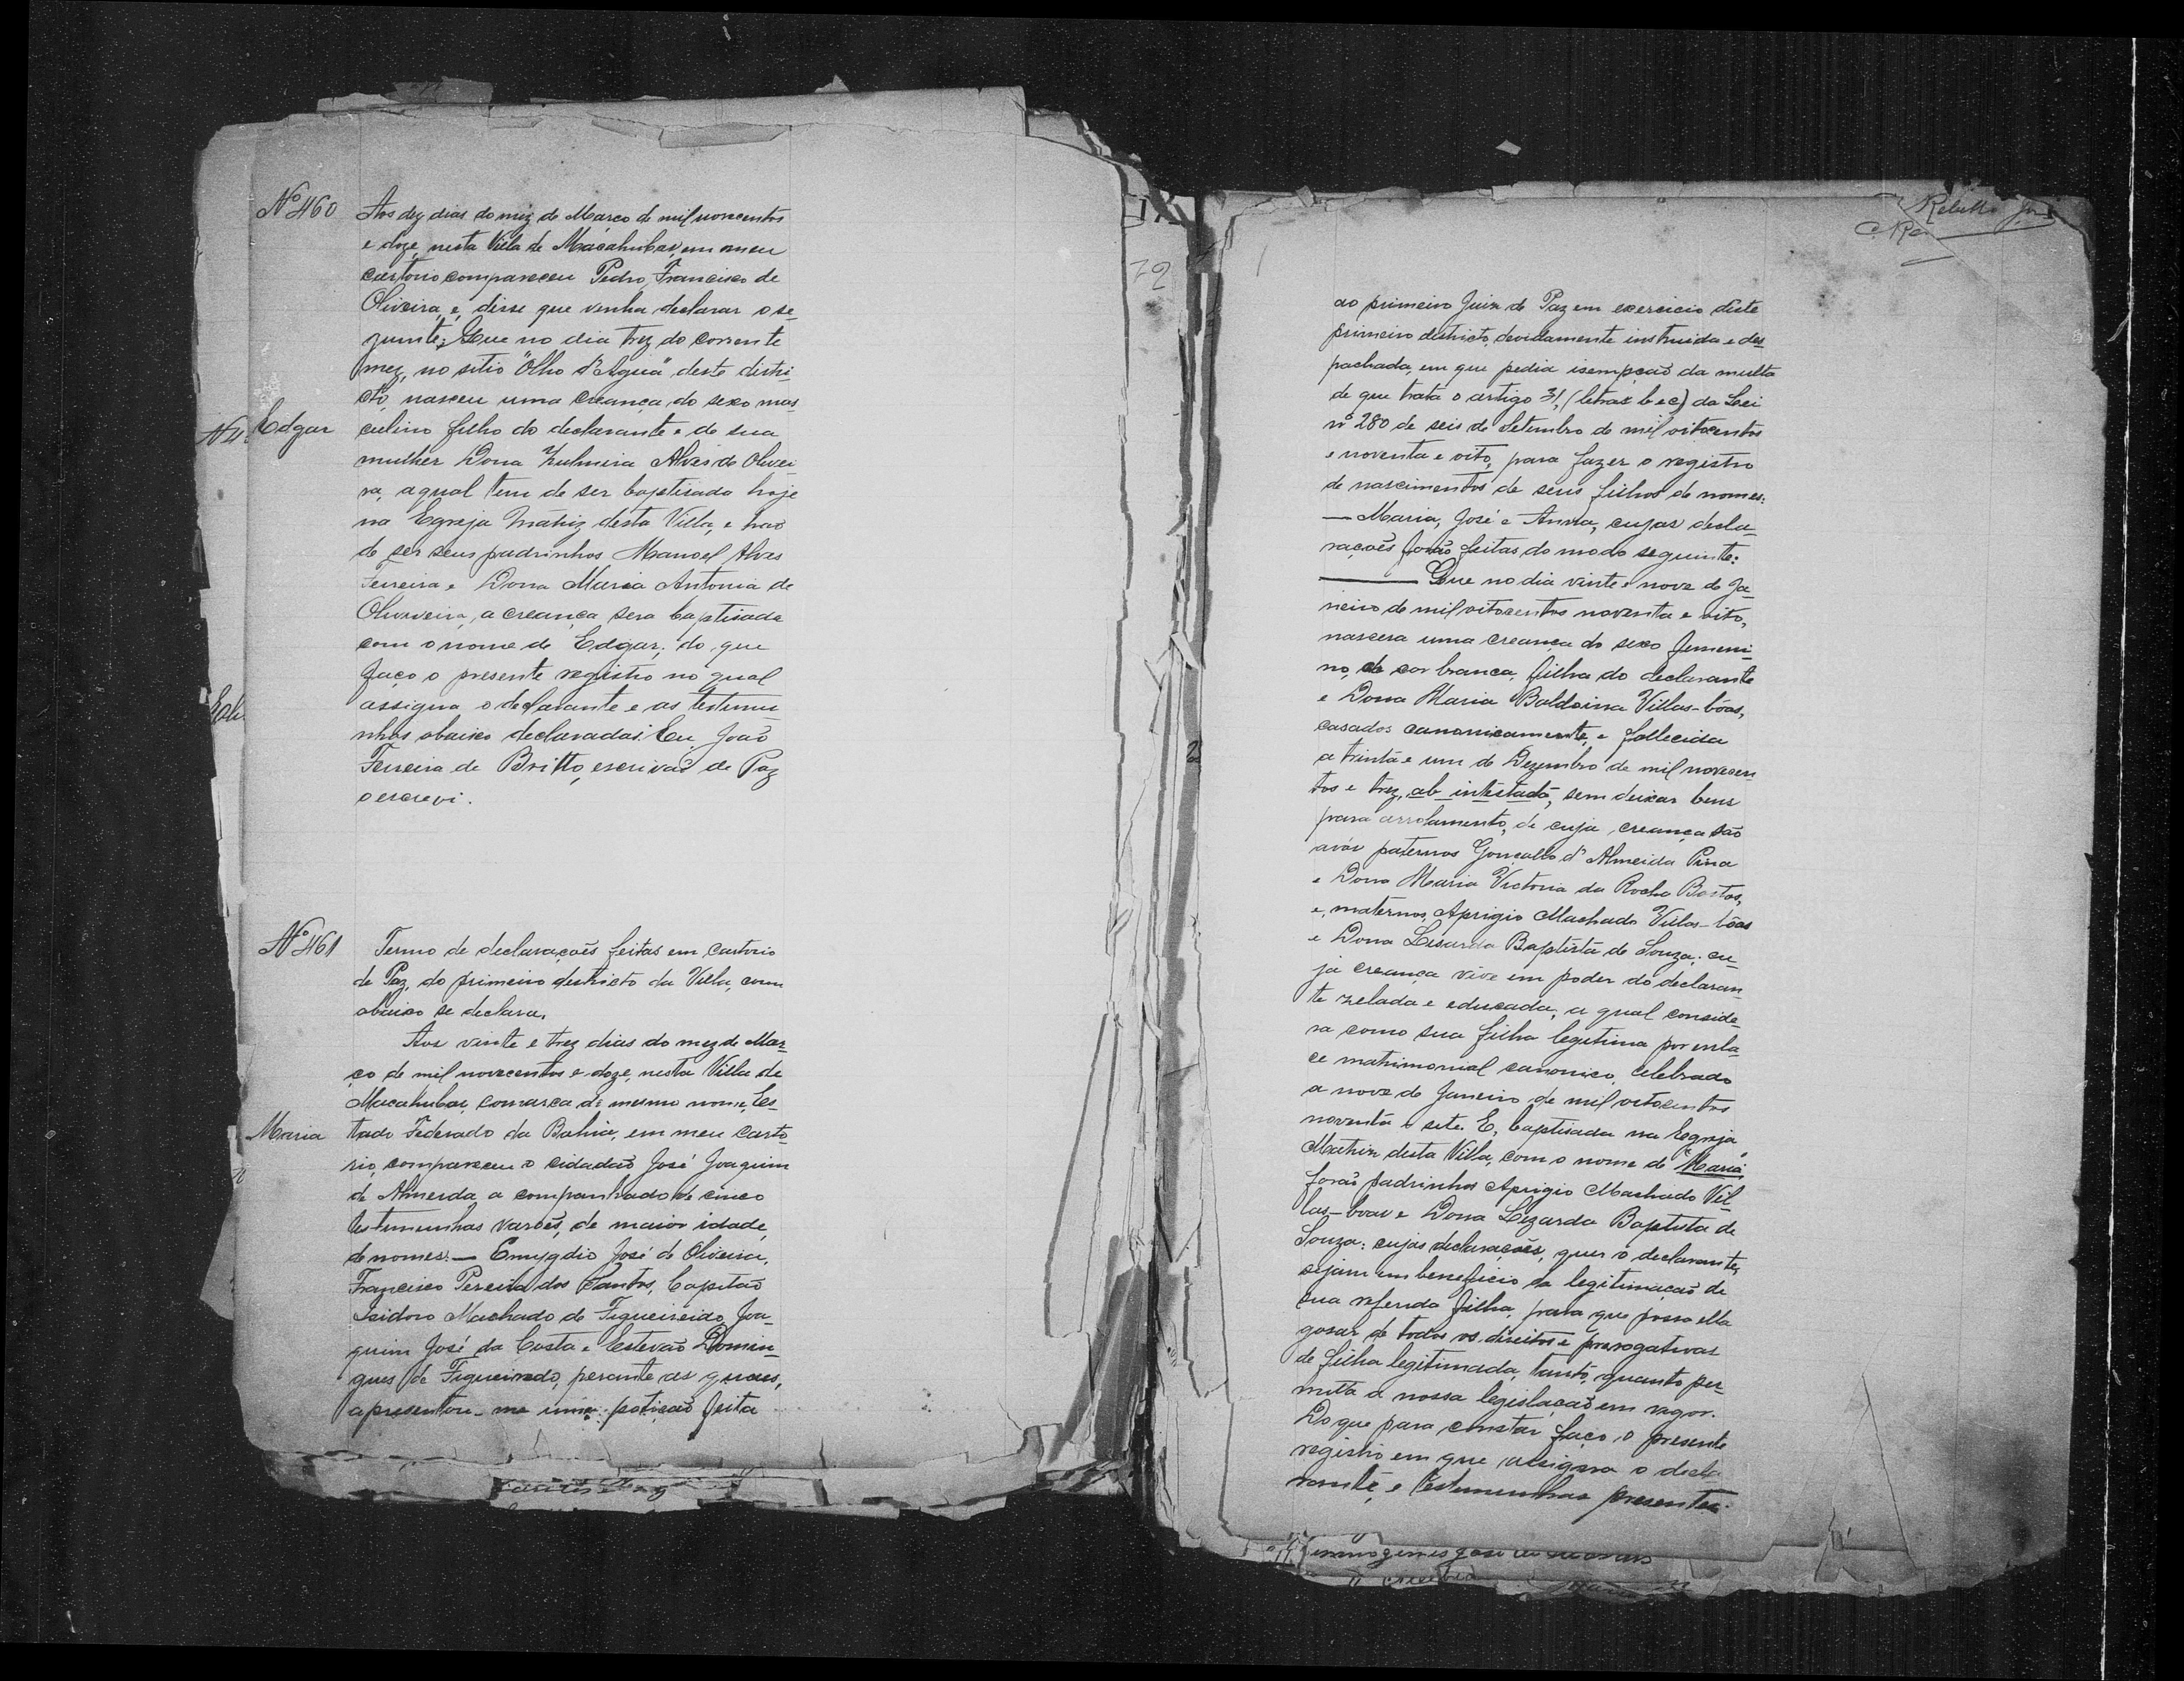 Nº 460
Aos dez dias do mez de Março de mil novecentos
e doze, nesta Villa de Macahubas, em o meu
cartorio compareceu Pedro Francisco de
Oliveira, e, disse que venha declarar o se-
guinte; Que no dia trez do corrente
mez, no sitio "Olho d'Agua" deste distri-
cto, nasceu uma creança do sexo mas-
Edgar
culino filho do declarante e de sua
mulher Dona Zulmira Alves de Olivei-
ra, a qual tem de ser baptisada hoje
na Egreja Matriz desta Villa, e hão
de ser seus padrinhos Manoel Alves
Ferreira e Dona Maria Antonia de
Oliveira, a creança sera baptisada
com o nome de Edgar; do que
faço o presente registro no qual
assigna o declarante e as testemu-
nhas abaixo declaradas. Eu João
Ferreira de Britto, escrivão de Paz
o escrevi.
Nº 461
Termo de declarações feitas em cartorio
de Paz, do primeiro districto da Villa, como
abaixo se declara.
Aos vinte e trez dias do mez de Mar-
ço de mil novecentos e doze, nesta Villa de
Macahubas, comarca do mesmo nome, Es-
Maria
tado Federado da Bahia, em meu carto-
rio, compareceu o cidadão José Joaquim
de Almeida, a companhado de cinco
testemunhas varões, de maior idade,
de nomes: — Emygdio José de Oliveira,
Francisco Pereira dos Santos, Capitão
Isidoro Machado de Figueireido, Joa-
quim José da Costa e Estevão Domin-
gues de Figueiredo, perante as quaes,
apresentou-me uma petição feita
72
ao primeiro Juiz de Paz em exercicio deste
primeiro districto, devidamente instruida e des-
pachada, em que pedia isempção da multa
de que trata o artigo 31, (letras b e c) da Lei
nº 280 de seis de Setembro de mil oitocentos
e noventa e oito, para fazer o registro
de nascimentos de seus filhos de nomes:
— Maria, José e Anna, cujas decla-
rações forão feitas do modo seguinte:
— Que no dia vinte e nove de Ja-
neiro de mil oitocentos noventa e oito,
nascera uma creança do sexo femeni-
no, de cor branca, filha do declarante
e Dona Maria Baldoina Villas-bôas,
casados canonicamente, e fallecida
a trinta e um de Dezembro de mil novecen-
tos e trez, ab intestado, sem deixar bens
para arrolamento, de cuja creança são
avós paternos Gonçallo d'Almeida Pina
e Dona Maria Victoria da Rocha Bastos,
e, maternos, Aprigio Machado Villas-bôas
e Dona Lisarda Baptista de Souza; cu-
ja creança vive em poder do declaran-
te zelada e educada, a qual conside-
ra como sua filha legitima por enla-
ce matrimonial canonico, celebrado
a nove de Janeiro de mil oitocentos
noventa e sete. E, baptisada na Egreja
Matriz desta Villa, com o nome de "Maria"
forão padrinhos Aprigio Machado Vil-
las-boas e Dona Lizarda Baptista de
Souza: cujas declarações, quer o declarante,
sejam em beneficio da legitimação de
sua referida filha, para que possa ella
gosar de todos os direitos e prerogativas
de filha legitimada, tanto, quanto per-
mitta a nossa legislação em vigor.
Do que para constar faço o presente
registro em que assigna o decla-
rante, e testemunhas presentes.